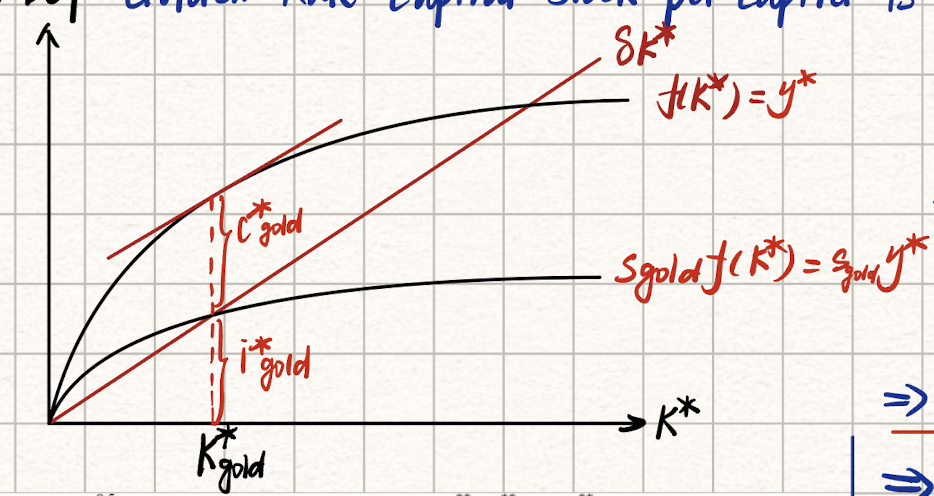 Golden Rule Capital Stock per capita is
δK*
f(K*) = y*
C*gold
Sgold f(K*) = Sgold y*
i*gold
⇒
K*
K*gold
⇒